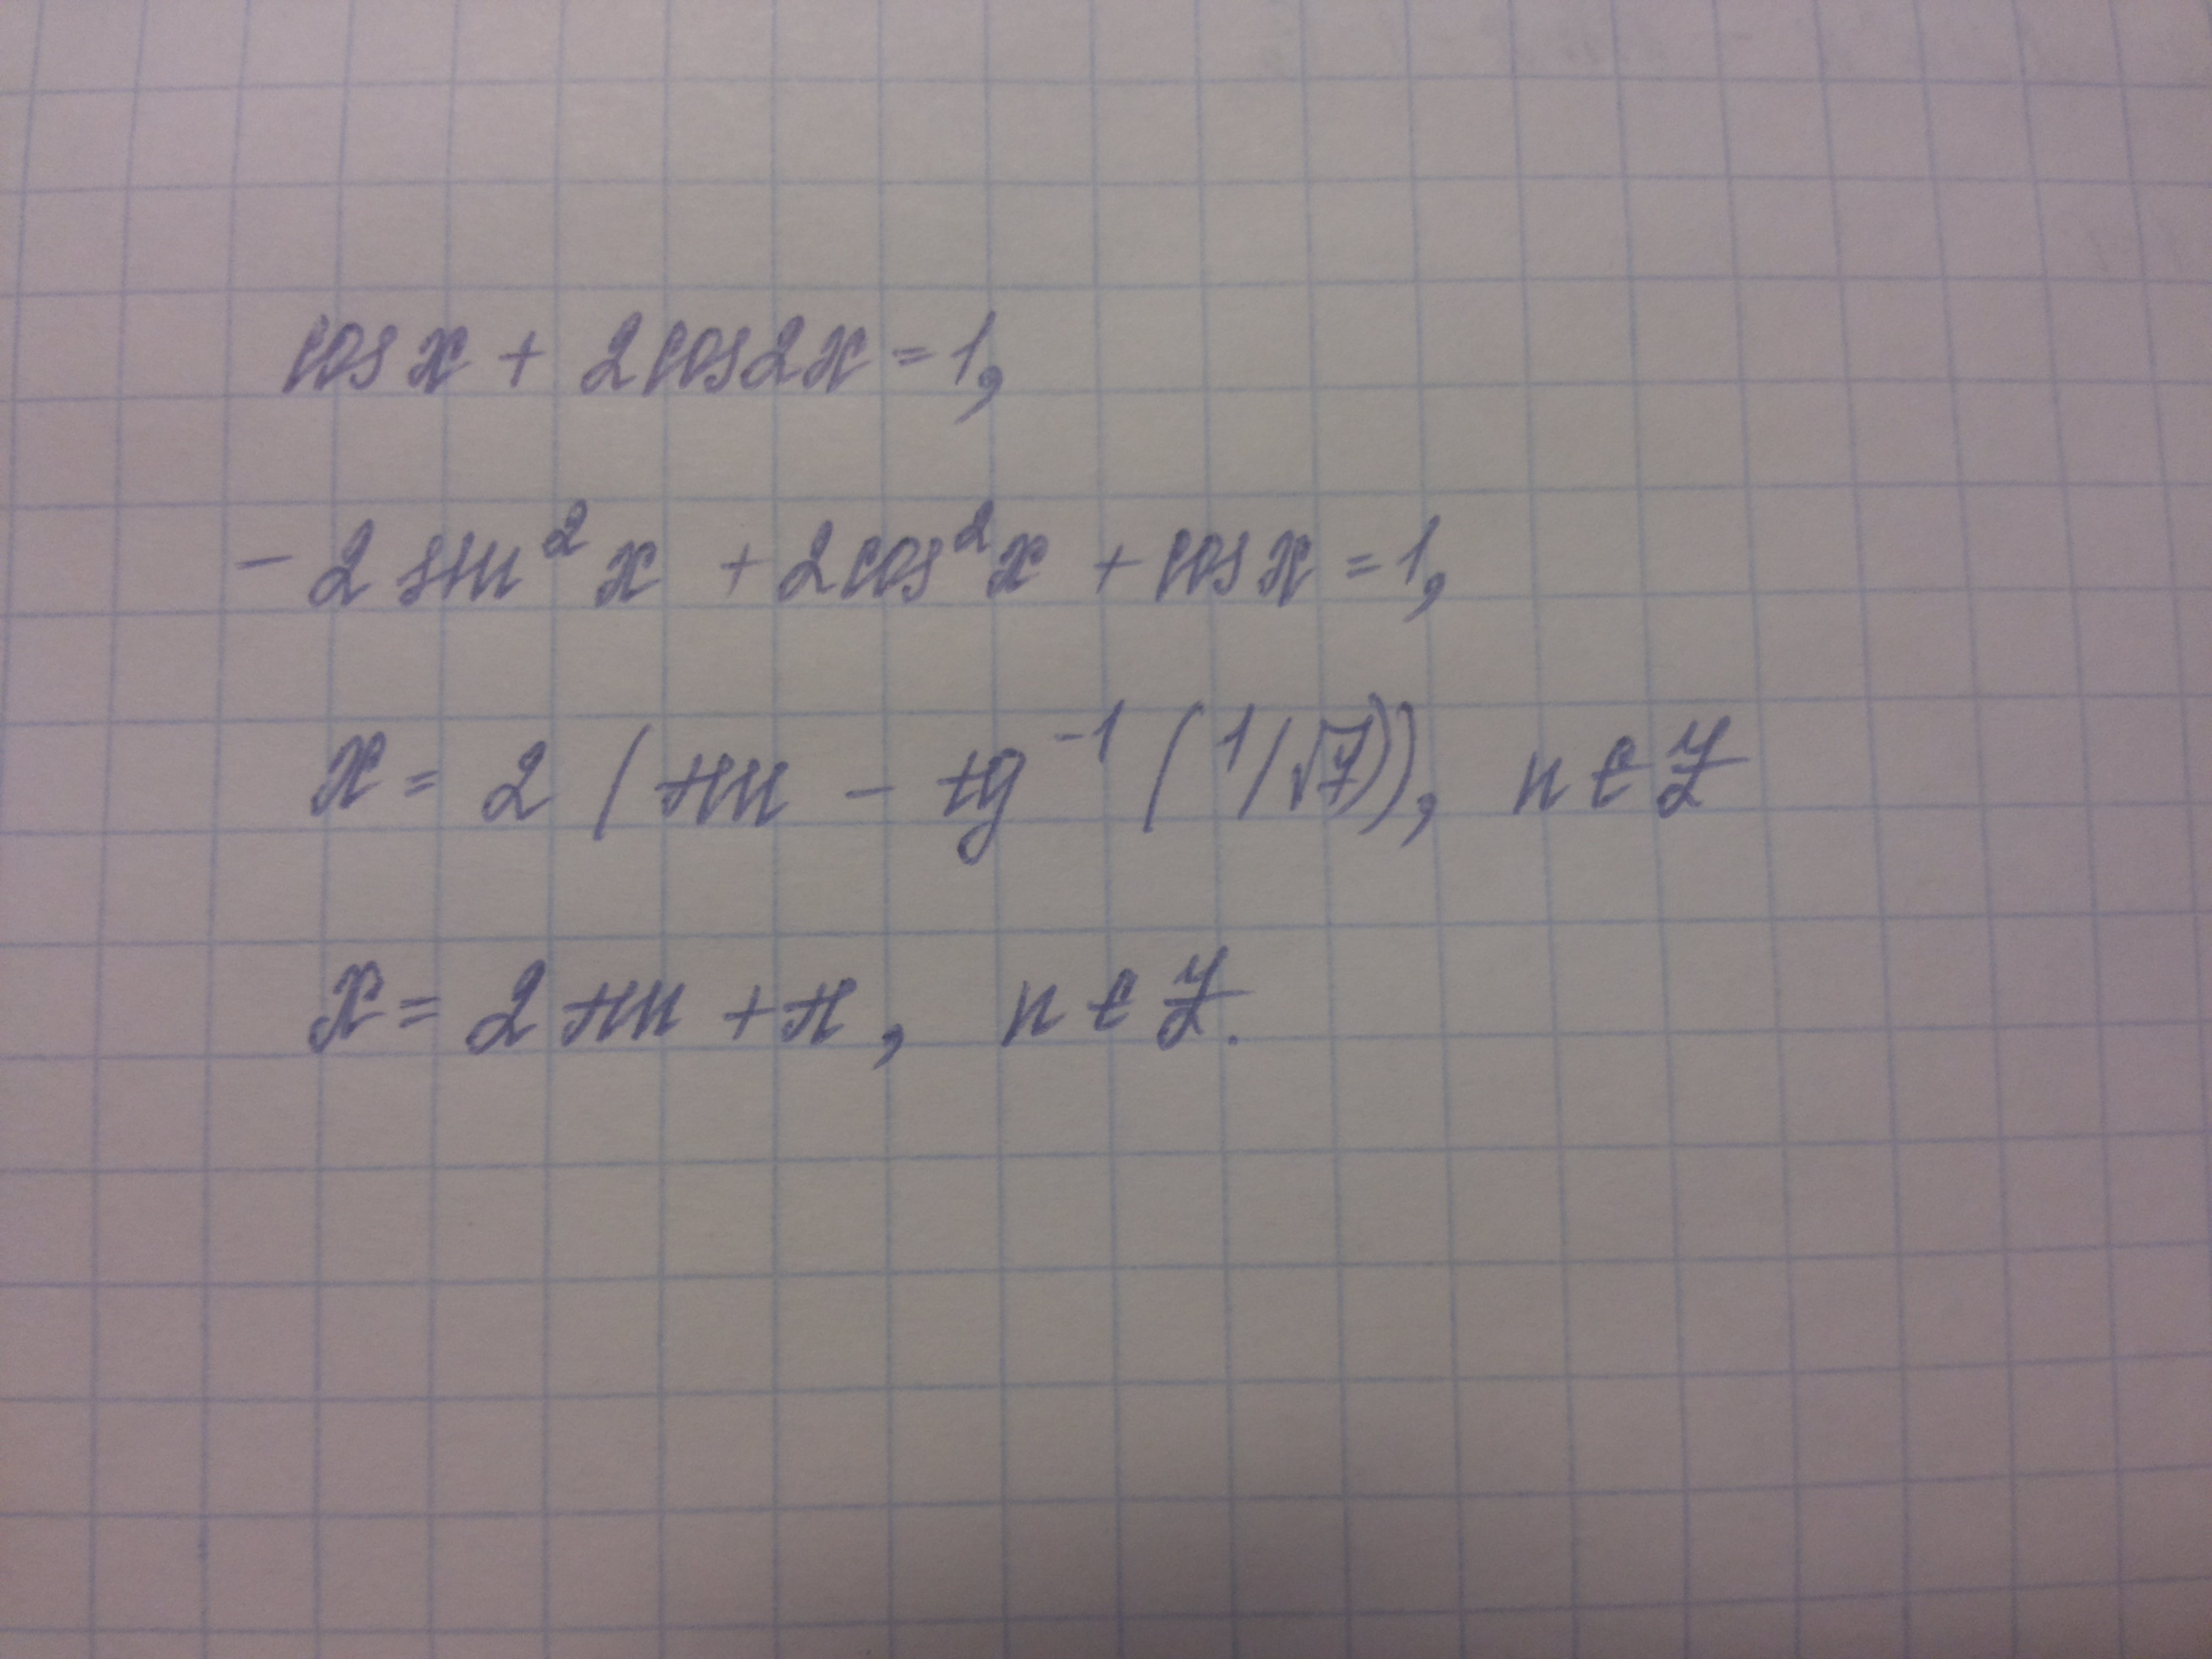 cos x + 2cos2x = 1,
- 2 sin² x + 2cos² x + cos x = 1,
x = 2 (πn - tg⁻¹ (1/√7)), n ∈ Z
x = 2πn + π, n ∈ Z.